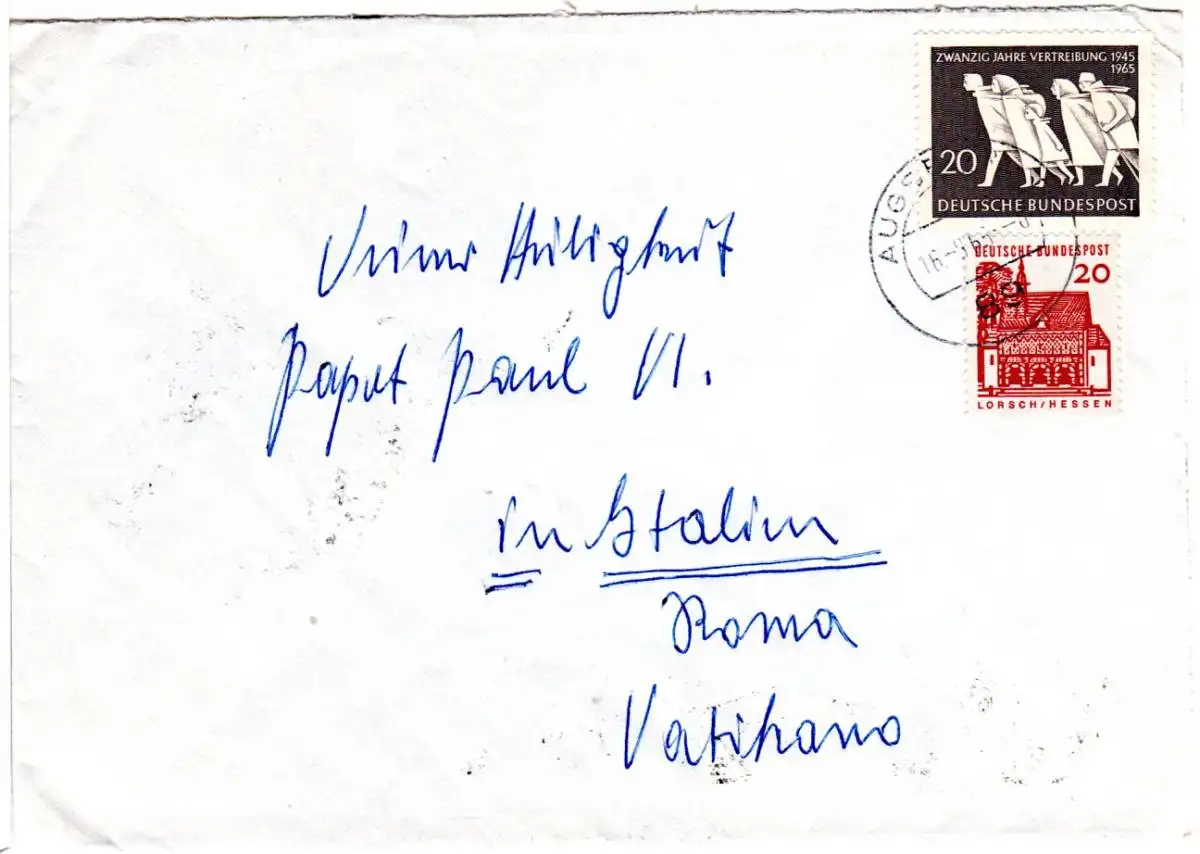 ZWANZIG JAHRE VERTREIBUNG 1945
1965
20
DEUTSCHE BUNDESPOST
AUGSB
DEUTSCHE BUNDESPOST
20
89
LORSCH/HESSEN
Seiner Heiligkeit
Papst Paul VI.
in Italien
Roma
Vatikano